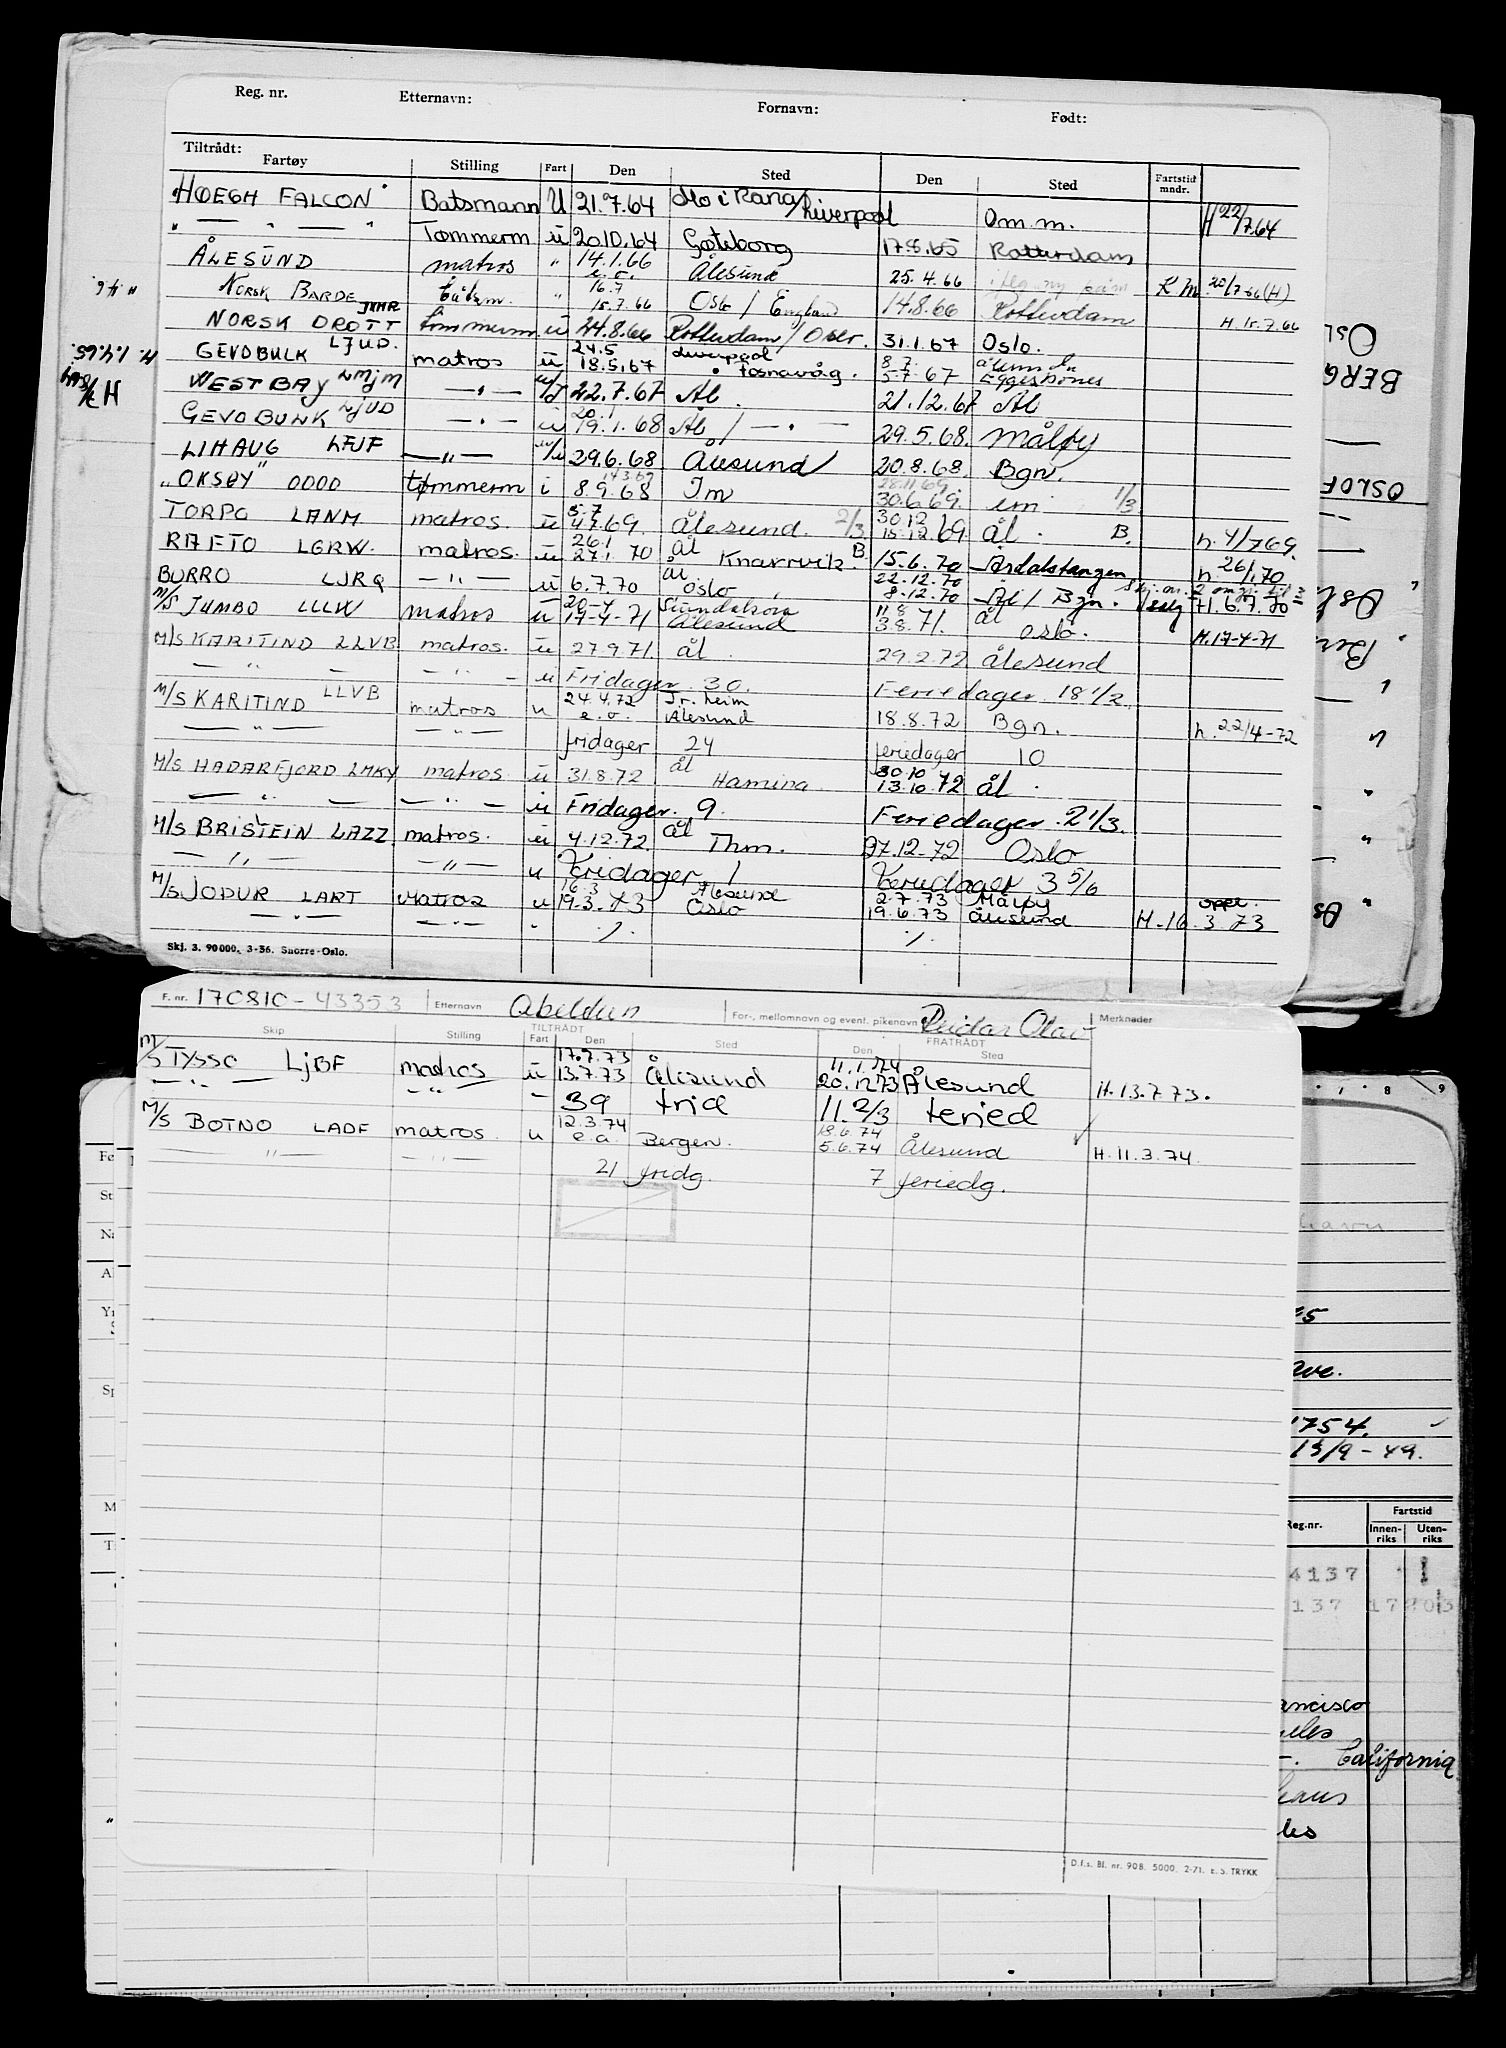 Reg. nr. Etternavn: Fornavn: Født:
Tiltrådt:
Fartøy Stilling Fart Den Sted Den Sted Fartstid mndr.
"HØEGH FALCON" Batsmann U 21.7.64 Mo i Rana/Liverpool Om.m. H 22/7.64
" — " — " Tømmerm u 20.10.64 Gøteborg 17.8.65 Rotterdam
ÅLESUND matros " 14.1.66 e.o. Ålesund 25.4.66 K M 20/7-66 (H)
NORSK BARDE JXHR båtsm. " 16.7 15.7.66 Oslo / England 14.8.66 Rotterdam H. 15.7.66
NORSK DROTT tømmerm u 24.8.66 Rotterdam / Oslo. 31.1.67 Oslo.
GEVOBULK LJUD. matros u 24.5 18.5.67 Liverpool Fosnavåg. 8.7. 5.7.67 Eggesbønes
WESTBAY LMJM — " — 22.7.67 Ål. 21.12.67 Ål
GEVOBULK LJUD — " — u 20.1 19.1.68 Ål / — " — 29.5.68. Måløy
LIHAUG LFJF — " — 29.6.68 Ålesund 20.8.68. Bgn.
"OKSØY" OOOO tømmerm i 8.9.68 Im 28.11.69 30.6.69. em 1/3
TORPO LANM matros. u 5.7 4.7.69. Ålesund. 2/3 30.12 15.12.69 ål. B. h. 4/7 69.
RAFTO LGRW. matros. u 26.1 27.1.70 ål Knarrvik B. 15.6.70 Årdalstangen h. 26/1.70
BURRO LJRQ — " — u 6.7.70 ål oslo 22.12.70 8.12.70 Ål / Bgn. H. 6.7.70
M/S JUMBO LLLW matros u 20-4 17-4-71 Sunndalsøra Ålesund 11.8 3.8.71. ål oslo. H. 17-4-71
M/S KARITIND LLVB matros. u 27.9.71. ål. 29.2.72 ålesund
— " — — " — u Fridager. 30. Feriedager. 18 1/2
M/S KARITIND LLVB matros u 24.4.72 e.o. Tr.heim Ålesund 18.8.72 Bgn. h. 22/4-72
— " — — " — fridager 24 feriedager 10
M/S HADARFJORD LMKY matros u 31.8.72 ål Hamina 30.10 13.10.72 ål.
— " — — " — u Fridager. 9. Feriedager. 2 1/3.
M/S BRISTEIN LAZZ matros. u 4.12.72 ål Thm. 27.12.72 Oslo
— " — — " — u Feridager 1 Feriedager 3 5/6
M/S JODUR LART Matros u 16.3 19.3.73 Ålesund Oslo 2.7.73 19.6.73 Måløy Ålesund H. 16.3.73 oppl.
— " — " ./. ./.
Skj. 3. 90000. 3-56. Snorre-Oslo.
H. 4.6.
H. 1.4.65
OSL
BERG
OSLOF
F. nr. 170810-43353 Etternavn Abeldun For-, mellomnavn og event. pikenavn Reidar Olav Merknader
Skip Stilling TILTRÅDT Fart Den Sted FRATRÅDT Den Sted
M/S TYSSO LJBF matros u 17.7.73 13.7.73 Ålesund 11.1.74 20.12.73 Ålesund H. 13.7.73.
— " — — " — 39 frid 11.2/3 feried
M/S BOTNO LADF matros. u 12.3.74 e.o. Bergen. 18.6.74 5.6.74 Ålesund H. 11.3.74.
— " — — " — 21 fridg. 7 feriedg.
D.f.s. Bl. nr. 908. 5000. 2-71. E.S. TRYKK
8 9
Fe
St
Na
Sp
M
T
1754.
13/9-49.
Reg.nr. Fartstid
Innen-riks Uten-riks
4137
137
ancisco
eles
California